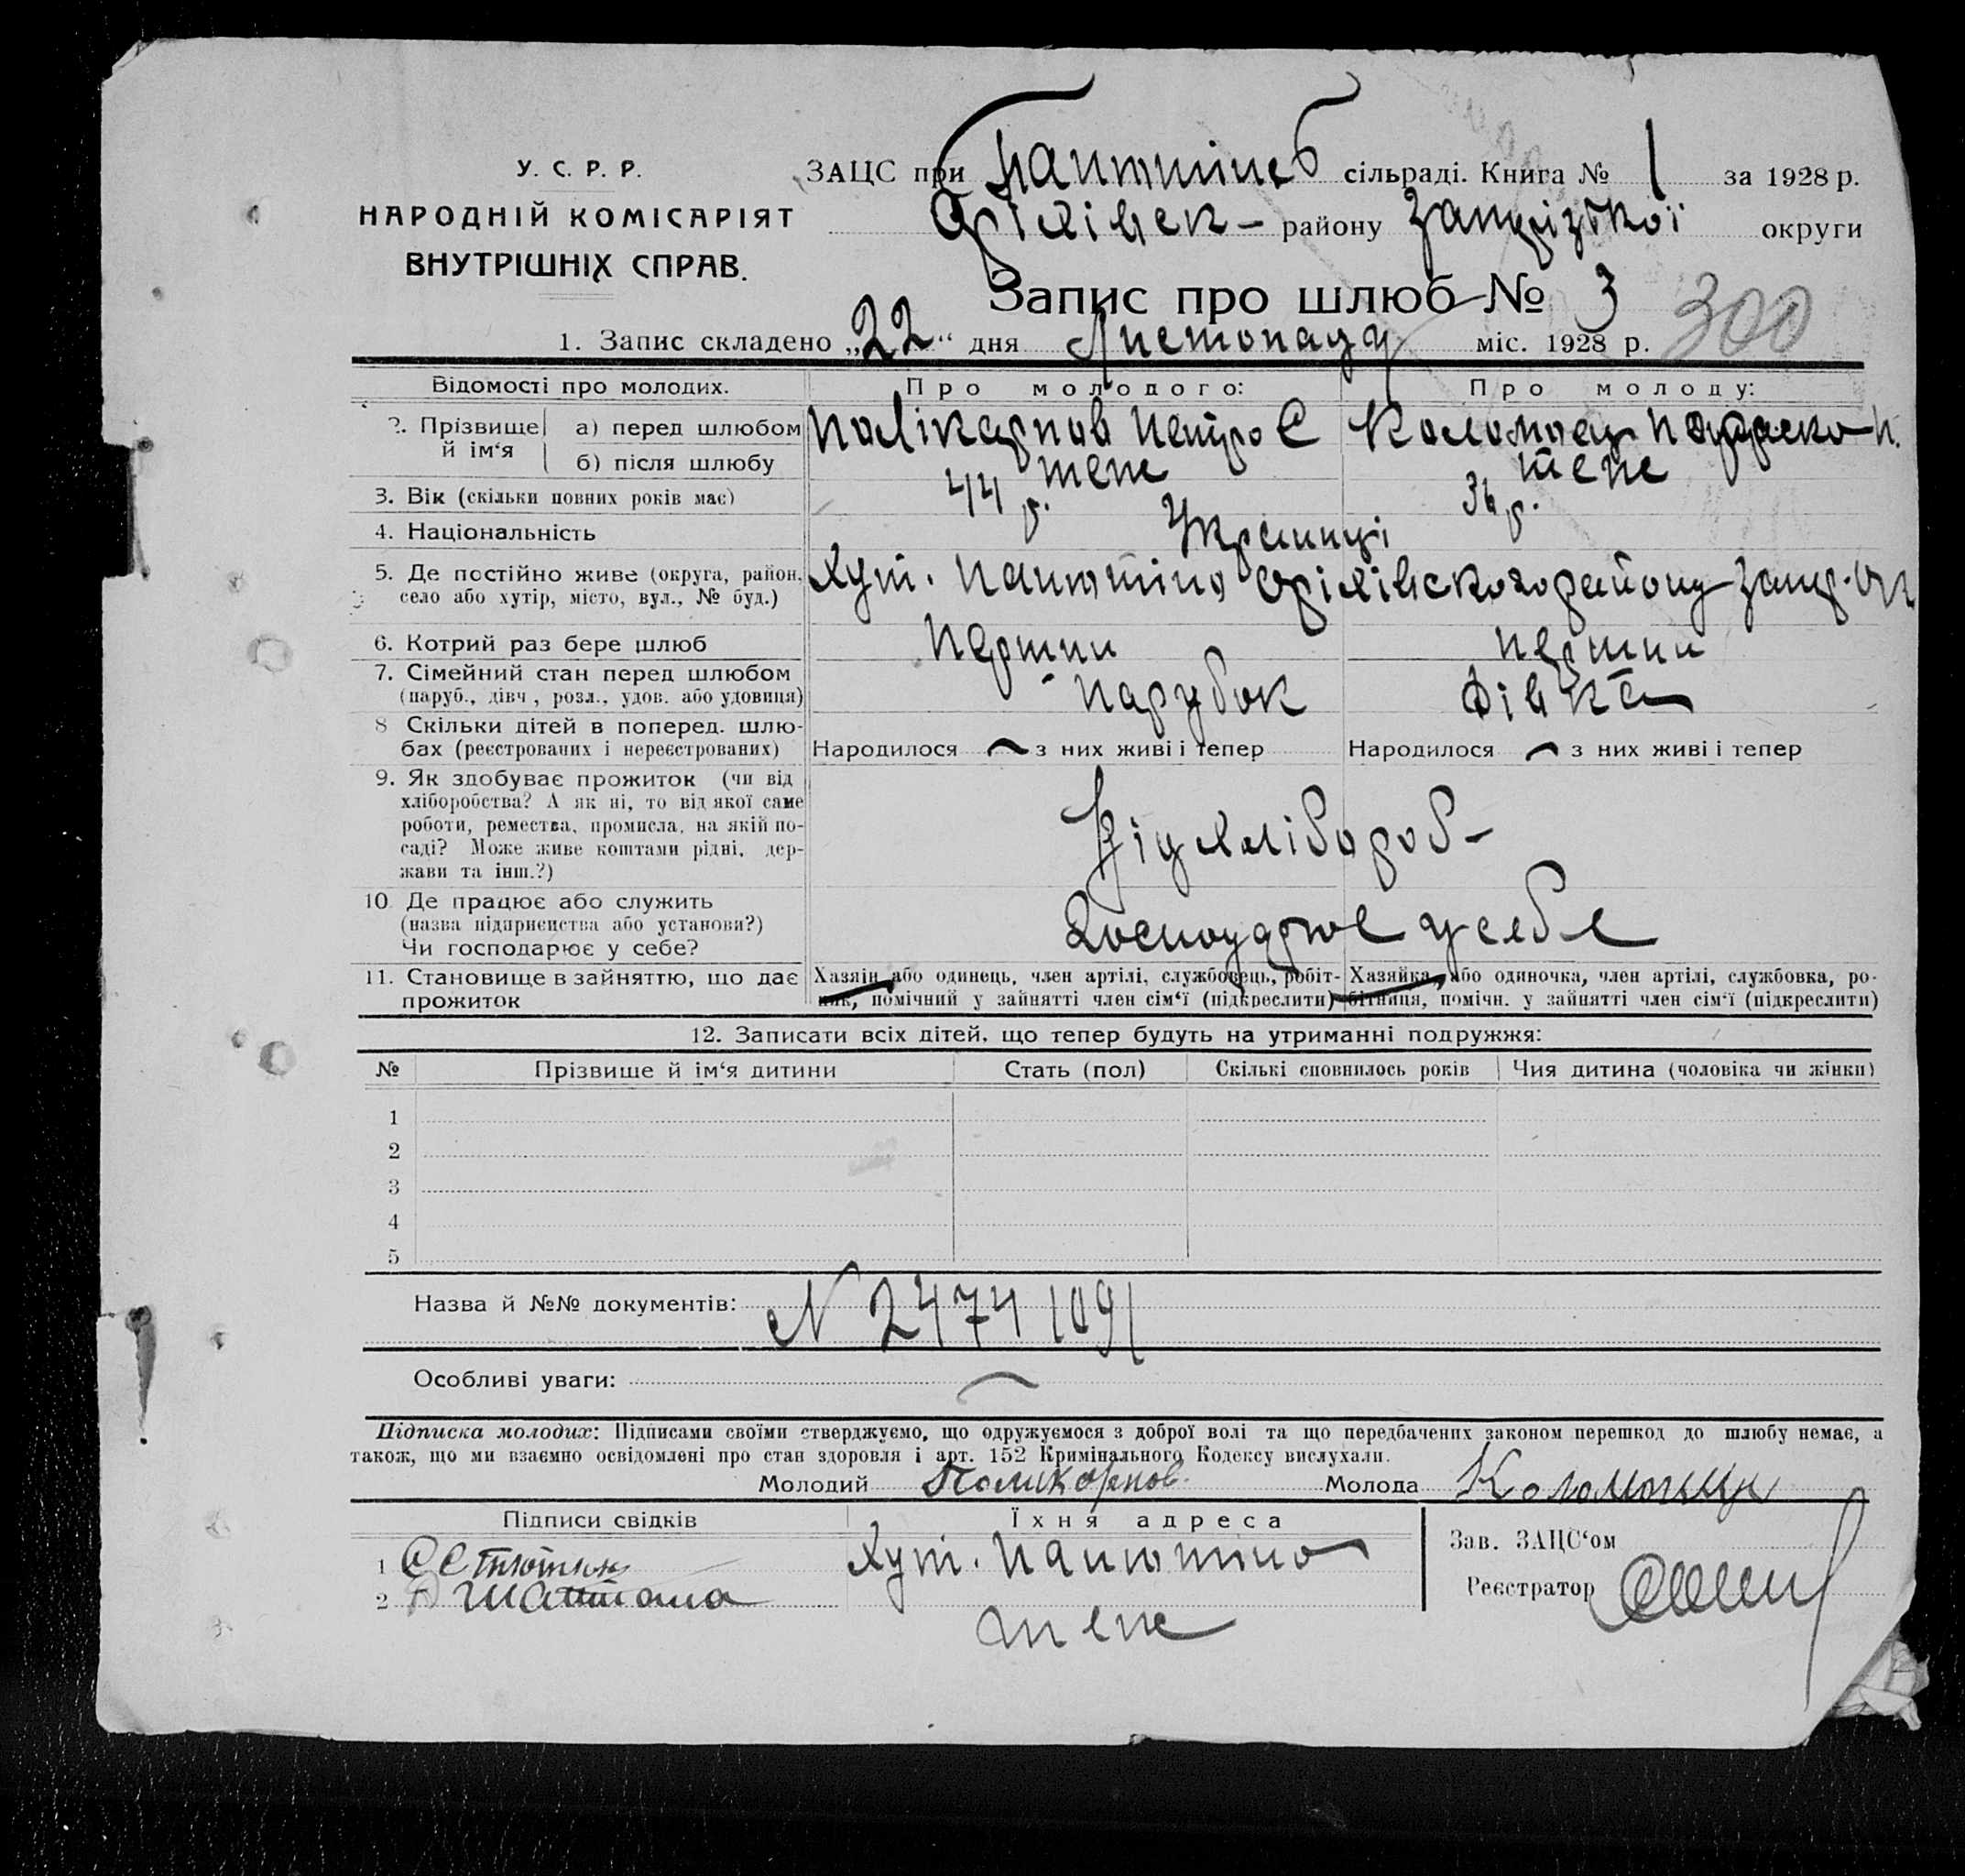 У. С. Р. Р.
НАРОДНІЙ КОМІСАРІЯТ
ВНУТРІШНІХ СПРАВ.
ЗАЦС при сільраді. Книга № 1 за 1928 р.
району округи
Запис про шлюб № 3
300
1. Запис складено „22“ дня Листопаду міс. 1928 р.
Відомості про молодих. Про молодого: Про молоду:
2. Прізвище й ім‘я а) перед шлюбом Полікарпов Петро Є Коломоец
б) після шлюбу теж теж
3. Вік (скільки повних років має) 44 р. 36 р.
4. Національність Українці
5. Де постійно живе (округа, район, село або хутір, місто, вул., № буд.) Хут. Панютіно району
6. Котрий раз бере шлюб Перший перший
7. Сімейний стан перед шлюбом (паруб., дівч., розл., удов. або удовиця) Парубок Дівка
8 Скільки дітей в поперед. шлюбах (реєстрованих і нереєстрованих) Народилося — з них живі і тепер Народилося — з них живі і тепер
9. Як здобуває прожиток (чи від хліборобства? А як ні, то від якої саме роботи, ремества, промисла, на якій посаді? Може живе коштами рідні, держави та інш.?) Від хлібороб-
10. Де працює або служить (назва підприємства або установи?) Чи господарює у себе? у себе
11. Становище в зайняттю, що дає прожиток
Хазяін або одинець, член артілі, службовець, робітник, помічний у зайнятті член сім‘ї (підкреслити)
Хазяйка або одиночка, член артілі, службовка, робітниця, помічн. у зайнятті член сім‘ї (підкреслити)
12. Записати всіх дітей, що тепер будуть на утриманні подружжя:
№ Прізвище й ім‘я дитини Стать (пол) Скількі сповнилось років Чия дитина (чоловіка чи жінки)
1
2
3
4
5
Назва й №№ документів: N 2474 1091
Особливі уваги: —
Підписка молодих: Підписами своїми стверджуємо, що одружуємося з доброї волі та що передбачених законом перешкод до шлюбу немає, а
також, що ми взаємно освідомлені про стан здоровля і арт. 152 Кримінального Кодексу вислухали.
Молодий Поликарпов Молода
Підписи свідків Їхня адреса
1 Хут. Панютино
2 теж
Зав. ЗАЦС‘ом
Реєстратор